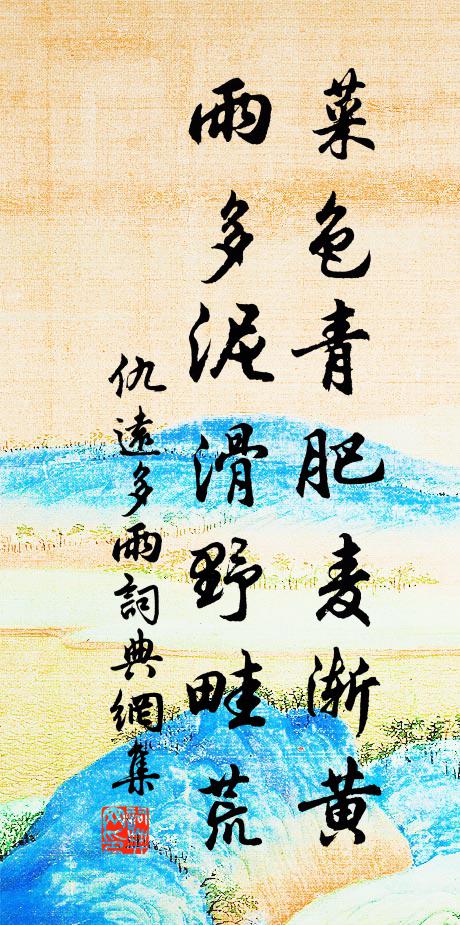 菜色青肥麦渐黄
雨多泥滑野畦荒
仇遠多雨詞典網集